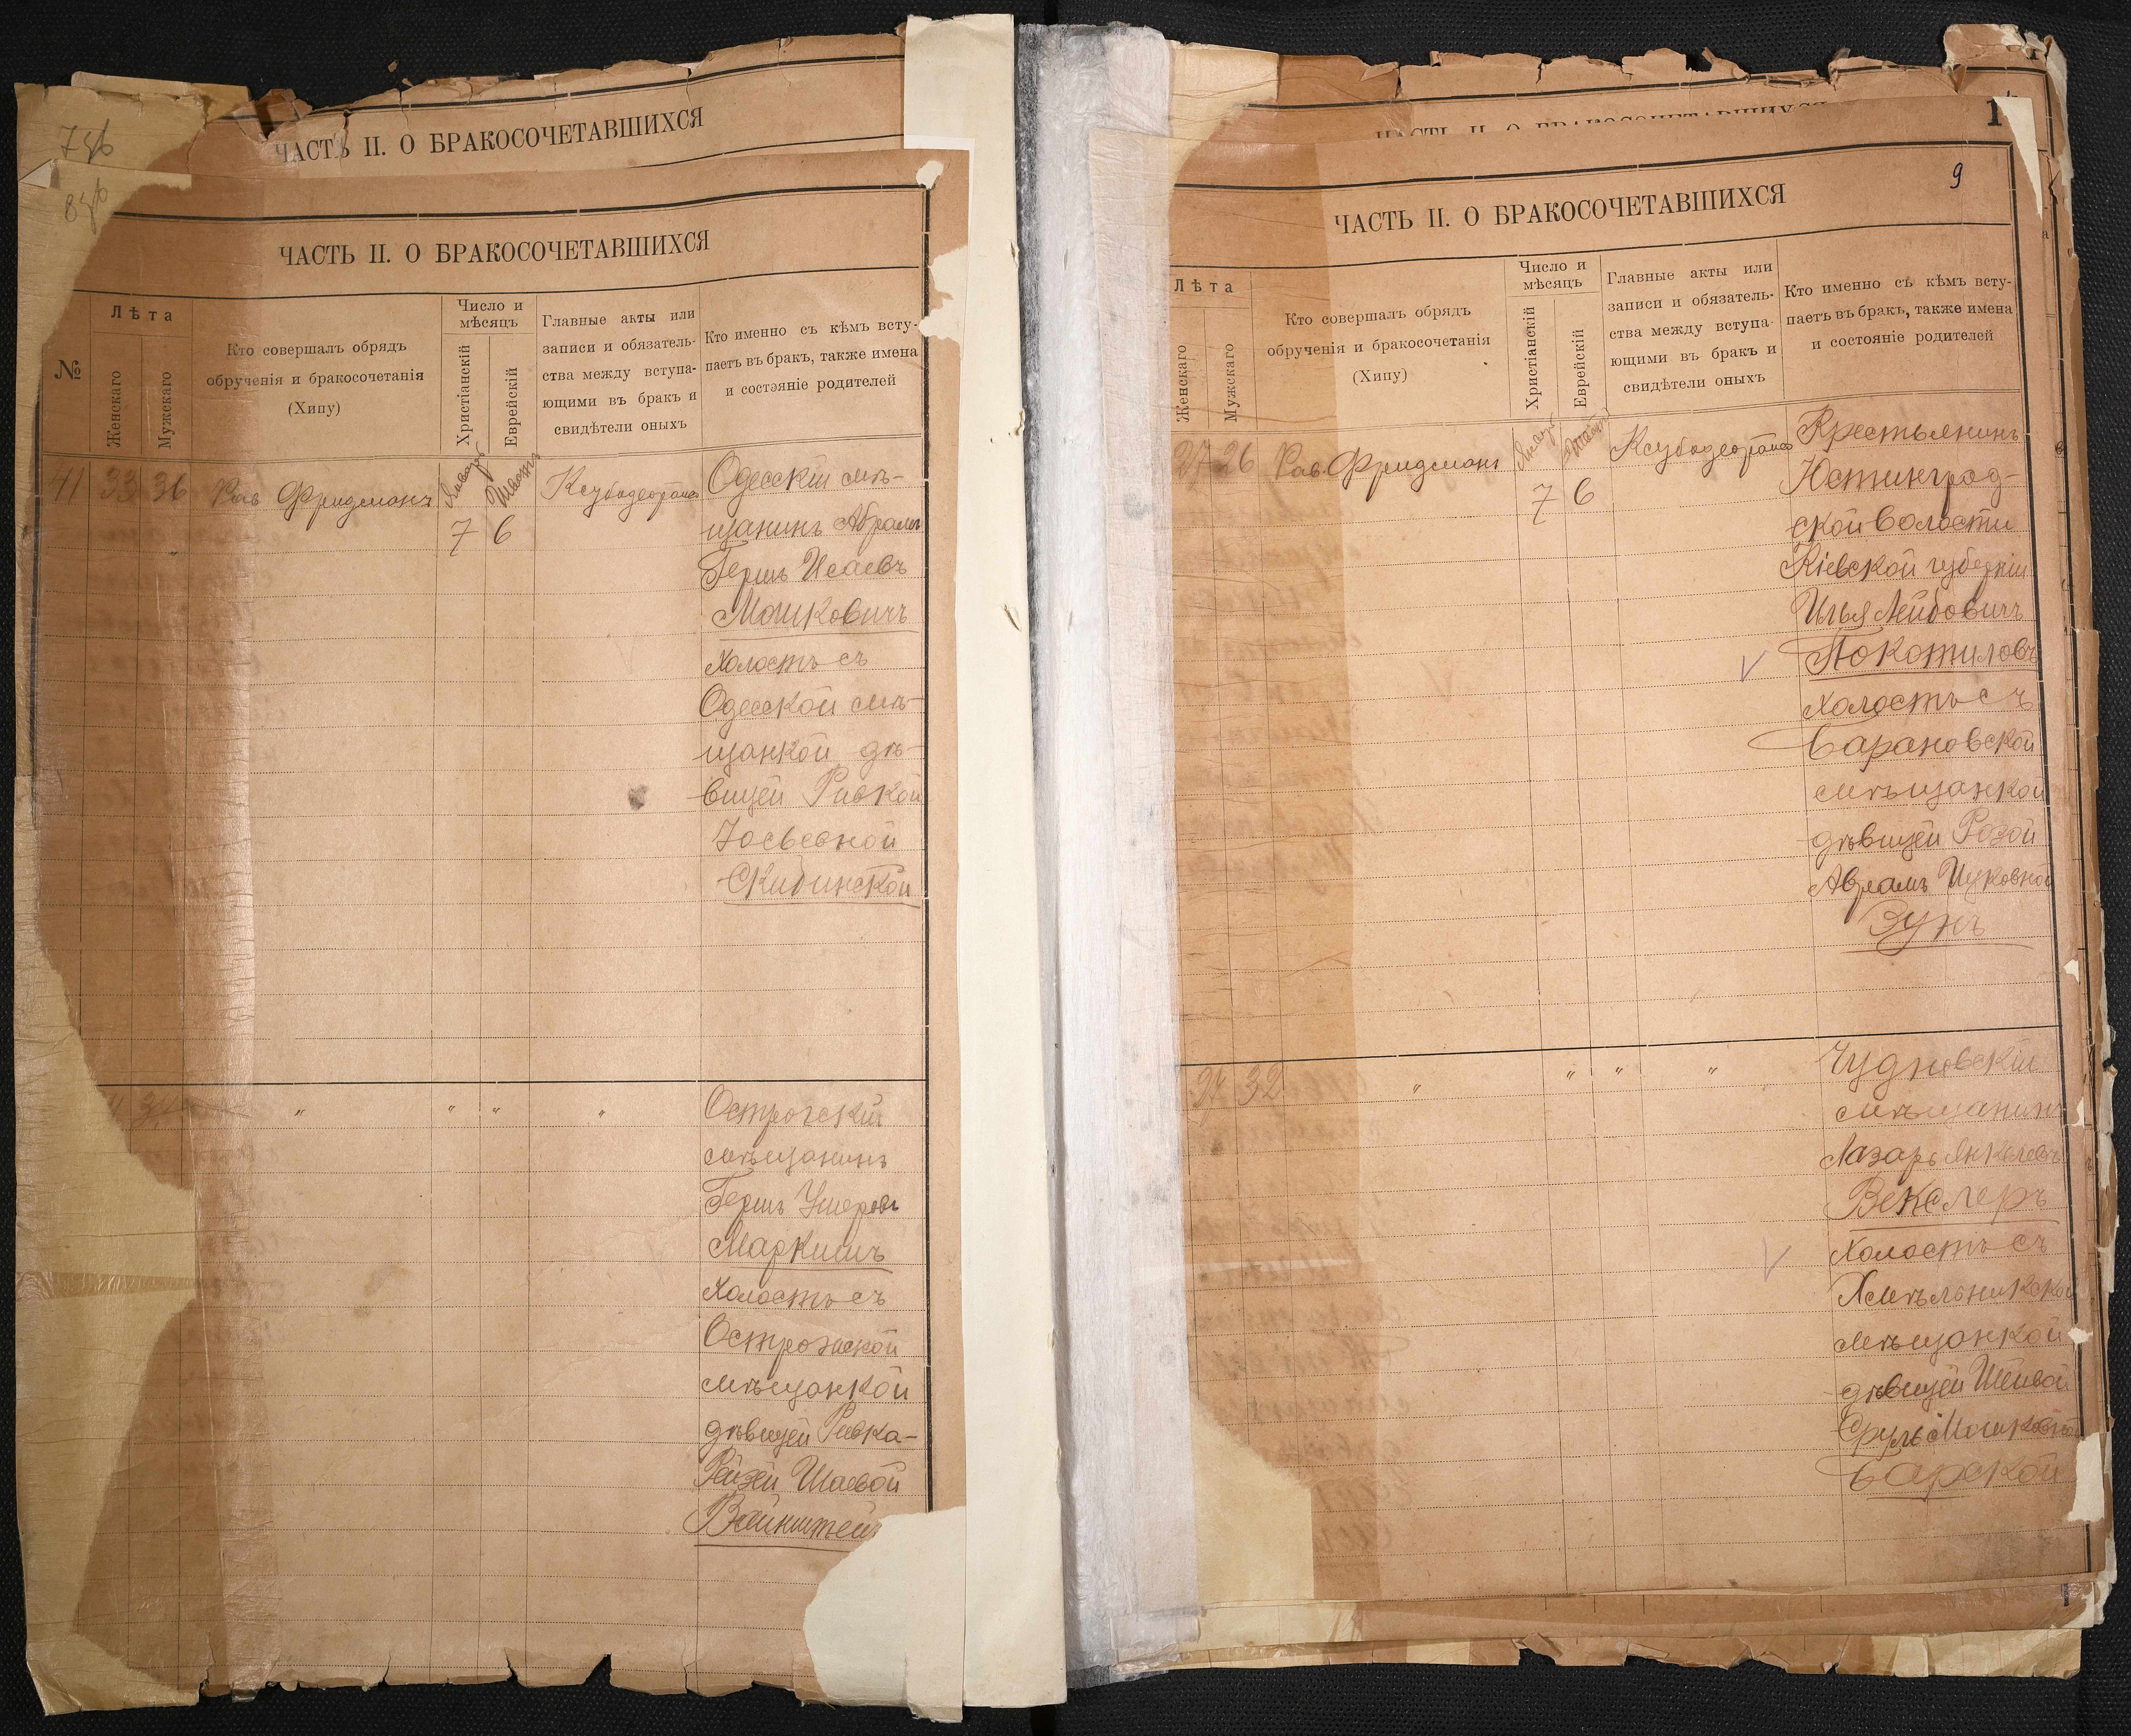 ЧАСТЬ II. О БРАКОСОЧЕТАВШИХСЯ
ЧАСТЬ II. О БРАКОСОЧЕТАВШИХСЯ
№
Лѣта
Женскаго
Мужскаго
Кто совершалъ обрядъ
обрученія и бракосочетанія
(Хипу)
Число и
мѣсяцъ
Христіанскій
Еврейскій
Главные акты или
записи и обязатель-
ства между вступа-
ющими въ бракъ и
свидѣтели оныхъ
Кто именно съ кѣмъ всту-
паетъ въ бракъ, также имена
и состэяніе родителей
41 33 36 Рав Фридманъ Январь Шватъ
7 6
Одесскій мѣ-
щанинъ Абрамъ
Гершъ Исаевъ
Машковичъ
холостъ съ
Одесской мѣ-
щанкой дѣ-
вицей Ривкой
Іосьевной
Скибинской
34 " " " "
Острогскій
мѣщанинъ
Гершъ Ушеровъ
Маркишъ
холостъ съ
Острожской
мѣщанкой
дѣвицей Ривка-
Рейзей Шаевой
Вайнштейн
ЧАСТЬ II. О БРАКОСОЧЕТАВШИХСЯ
9
ЧАСТЬ II. О БРАКОСОЧЕТАВШИХСЯ
Лѣта
Женскаго
Мужскаго
Кто совершалъ обрядъ
обрученія и бракосочетанія
(Хипу)
Число и
мѣсяцъ
Христіанскій
Еврейскій
Главные акты или
записи и обязатель-
ства между вступа-
ющими въ бракъ и
свидѣтели оныхъ
Кто именно съ кѣмъ всту-
паетъ въ бракъ, также имена
и состояніе родителей
27 26 Рав Фридманъ Январь Шватъ
7 6
Крестьянинъ
Юстинград-
ской волости
Кіевской губерніи
Илья Лейбовичъ
Покотиловъ
холостъ съ
Барановской
мѣщанкой
дѣвицей Розой
Абрамъ Ицковной
Зунъ
24 32 " " " "
Чудновскій
мѣщанинъ
Лазарь Янкелевъ
Векслеръ
холостъ съ
Хмѣльникской
мѣщанкой
дѣвицей Шейвой
Сруль Мошковной
Барской